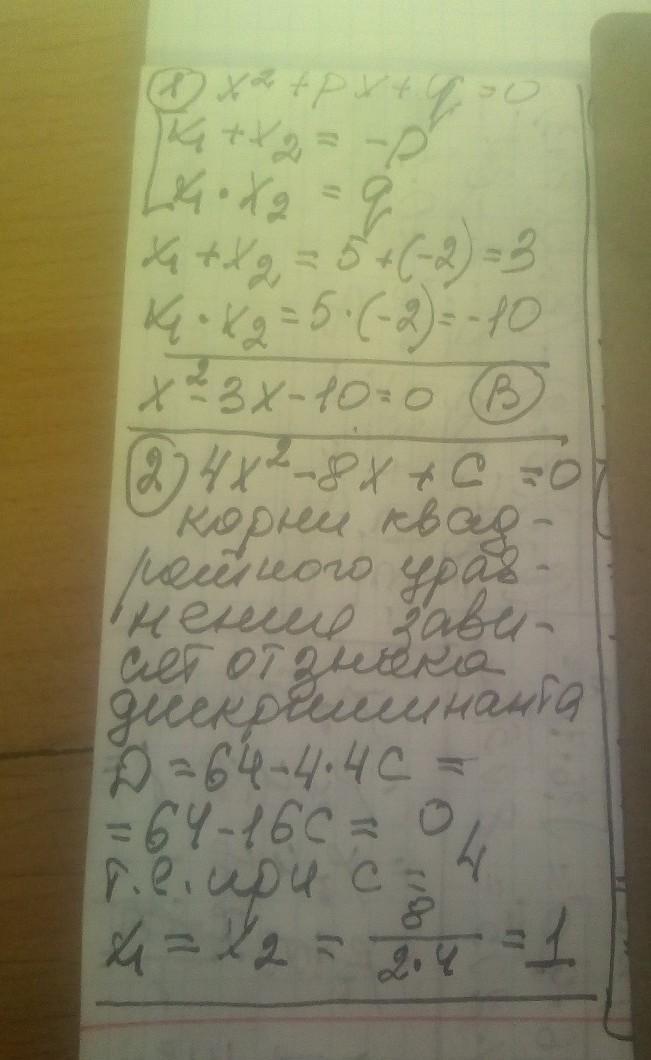 1) x² + px + q = 0
x₁ + x₂ = -p
x₁ · x₂ = q
x₁ + x₂ = 5 + (-2) = 3
x₁ · x₂ = 5 · (-2) = -10
x² - 3x - 10 = 0 В
2) 4x² - 8x + C = 0
корни квад-
ратного урав-
нения зави-
сят от знака
дискриминанта
D = 64 - 4·4C =
= 64 - 16C = 0
т.е. при C = 4
x₁ = x₂ = 8/(2·4) = 1